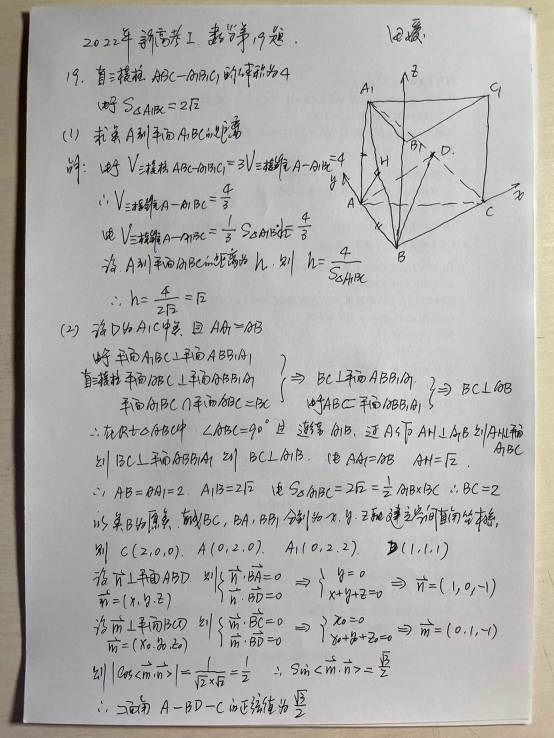 2022年 新高考I 数学第19题.
19. 直三棱柱 ABC-A₁B₁C₁ 的体积为4
由于 S△A₁BC = 2√2
(1) 求点A到平面A₁BC的距离
解: 由于 V三棱柱ABC-A₁B₁C₁ = 3V三棱锥A-A₁BC = 4
∴ V三棱锥A-A₁BC = 4/3
由 V三棱锥A-A₁BC = 1/3 S△A₁BC·h = 4/3
设A到平面A₁BC的距离为h. 则 h = 4/S△A₁BC
∴ h = 4/2√2 = √2
(2) 设D为A₁C中点 且 AA₁=AB
由于 平面A₁BC⊥平面ABB₁A₁
直三棱柱 平面ABC⊥平面ABB₁A₁ ⇒ BC⊥平面ABB₁A₁ ⇒ BC⊥AB
平面A₁BC∩平面ABC=BC 由于AB⊂平面ABB₁A₁
∴ 在Rt△ABC中 ∠ABC=90° 连结A₁B. 过A作 AH⊥A₁B 则AH⊥平面A₁BC
则 BC⊥平面ABB₁A₁ 则 BC⊥A₁B. 由 AA₁=AB AH=√2.
∴ AB=AA₁=2. A₁B=2√2 由 S△A₁BC=2√2=1/2 A₁B×BC ∴ BC=2
以点B为原点. BC, BA, BB₁ 分别为x. y. z轴建立空间直角坐标系.
则 C(2,0,0). A(0,2,0). A₁(0,2,2). D(1,1,1)
设n⃗⊥平面ABD. 则 { n⃗·BA⃗=0 n⃗·BD⃗=0 ⇒ { y=0 x+y+z=0 ⇒ n⃗=(1,0,-1)
n⃗=(x,y,z)
设m⃗⊥平面BCD 则 { m⃗·BC⃗=0 m⃗·BD⃗=0 ⇒ { x₀=0 x₀+y₀+z₀=0 ⇒ m⃗=(0,1,-1)
m⃗=(x₀,y₀,z₀)
则 |cos<m⃗·n⃗>| = 1/√2×√2 = 1/2 ∴ Sin<m⃗·n⃗> = √3/2
∴ 二面角 A-BD-C 的正弦值为 √3/2
z
A₁
C₁
B₁
D.
H
y
A
C
x
B